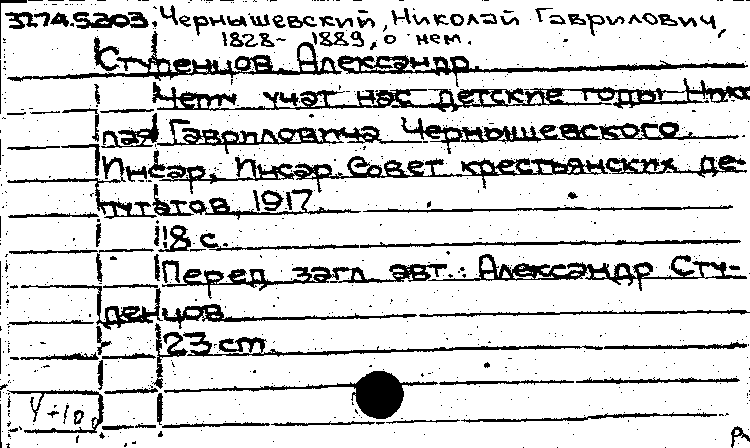 3274.5.203. Чернышевский, Николай Гаврилович,
1828- 1889, о нем.
Студенцов, Александр.
Чему учат нас детские годы Нико
лая Гавриловича Чернышевского.
Инсар, Инсар. Совет крестьянских де-
путатов, 1917.
18 с.
Перед загл. авт.: Александр Сту-
денцов
23 cm.